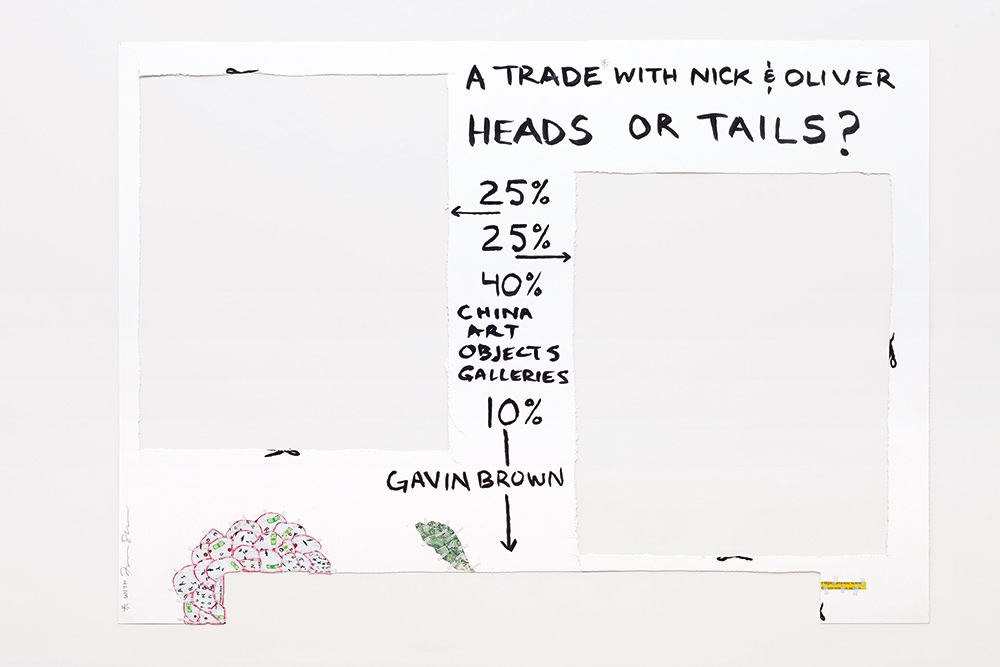 A TRADE* WITH NICK & OLIVER
HEADS OR TAILS?
25%
25%
40%
CHINA
ART
OBJECTS
GALLERIES
10%
GAVIN BROWN
* WITH